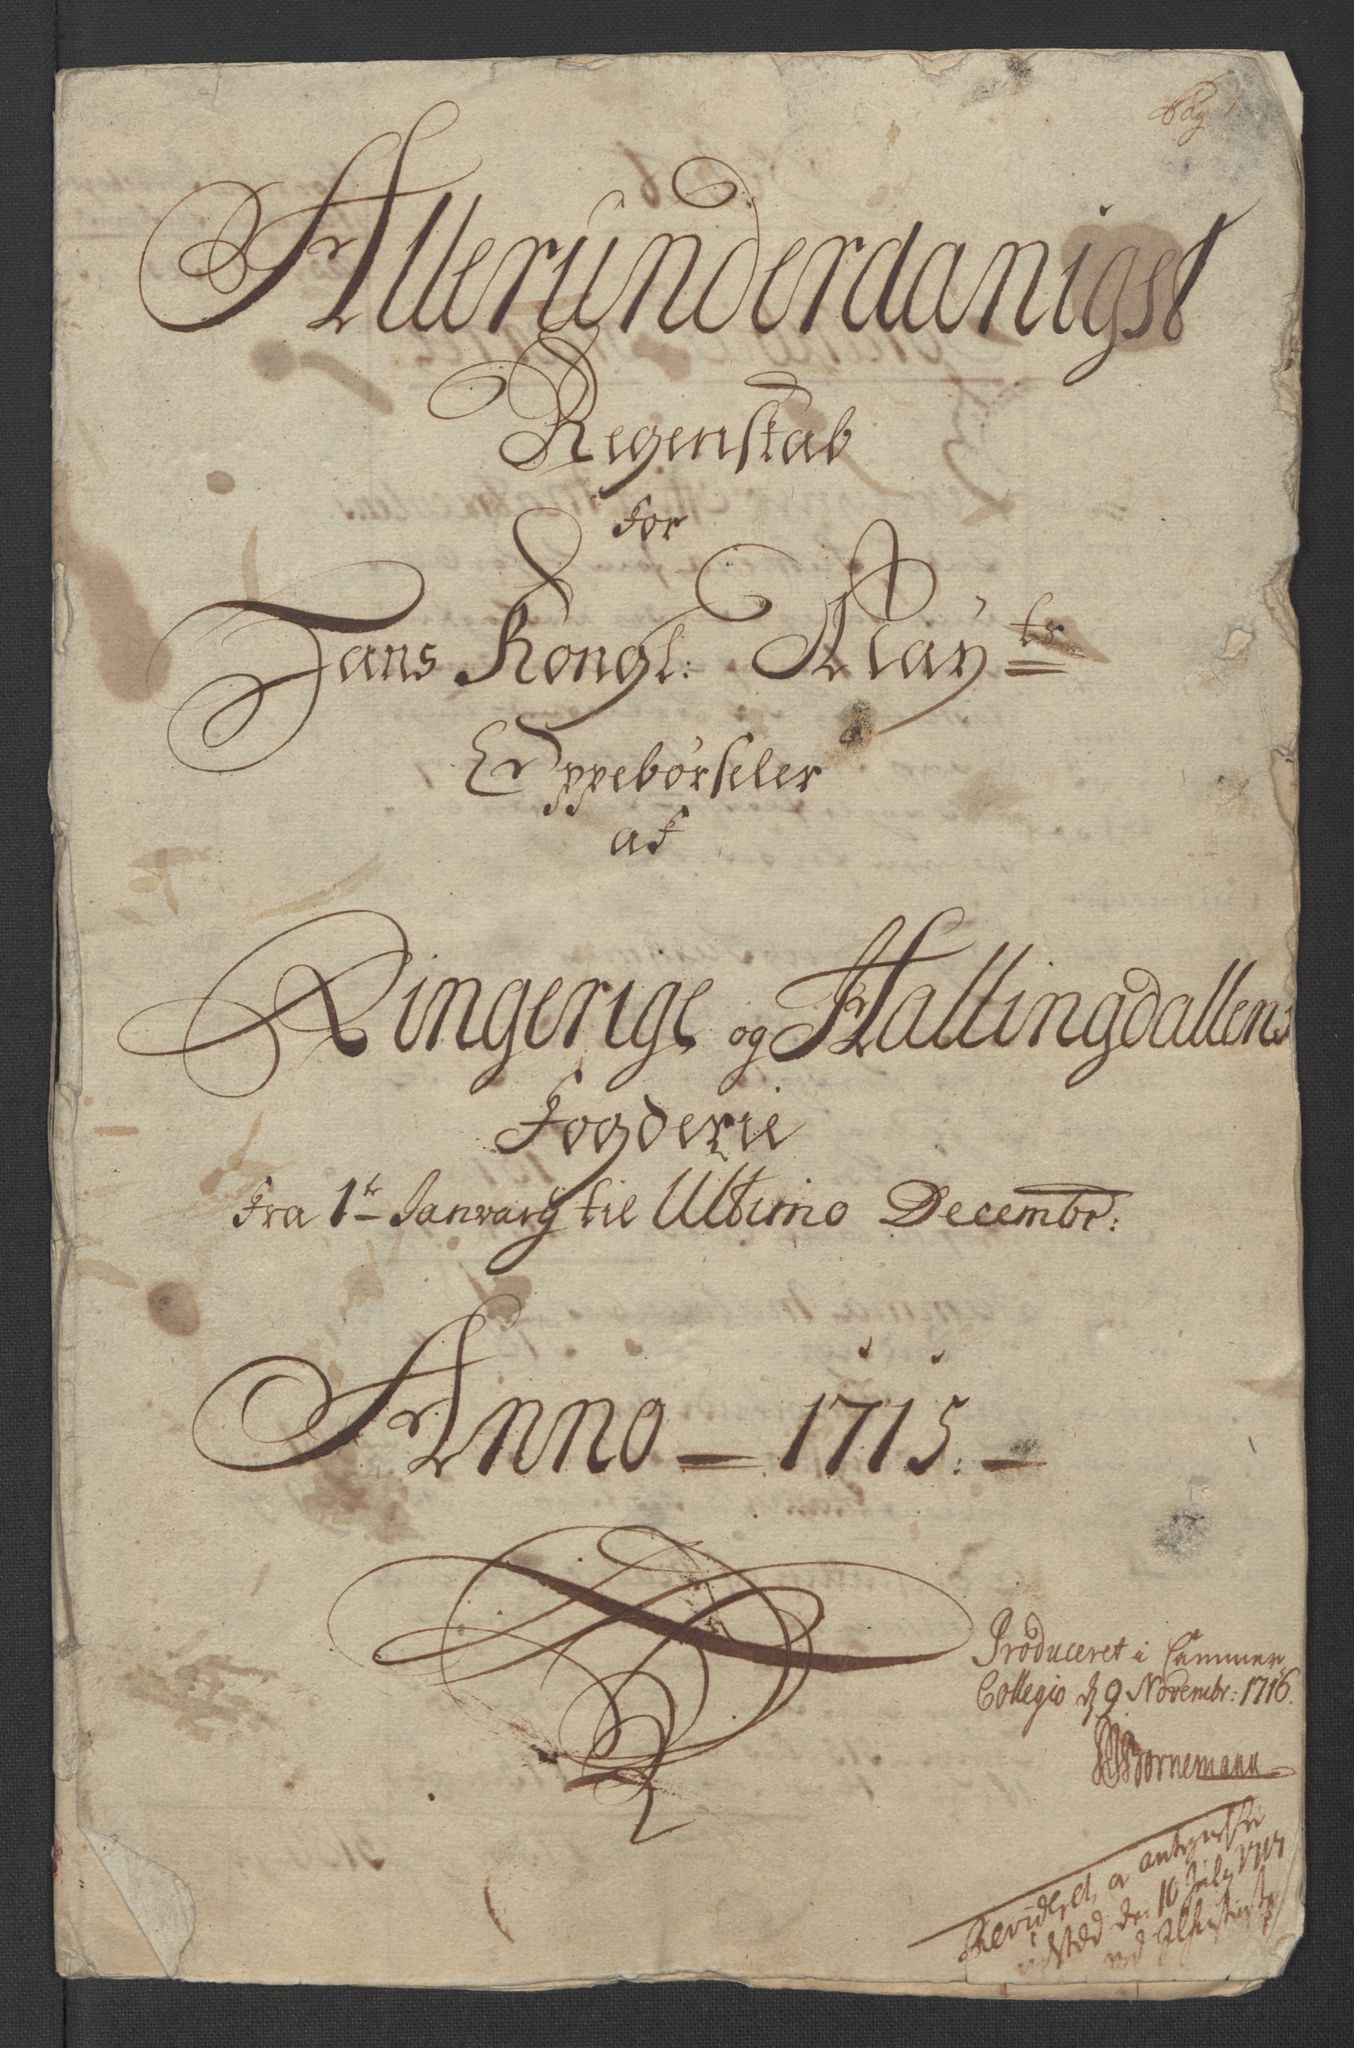 Pag 1
Allerunderdanigst
Regenskab
for
Hans Kongl: May.tz
Oppebørseler
af
Ringerige og Hallingdallens
Fogderie
Fra 1te Janvarÿ til Ultimo Decembr:
Anno 1715.
Produceret i Cammer
Collegio d 9 Novembr: 1716.
Bornemann
Revideret
udsted den 10 July 1717
ved